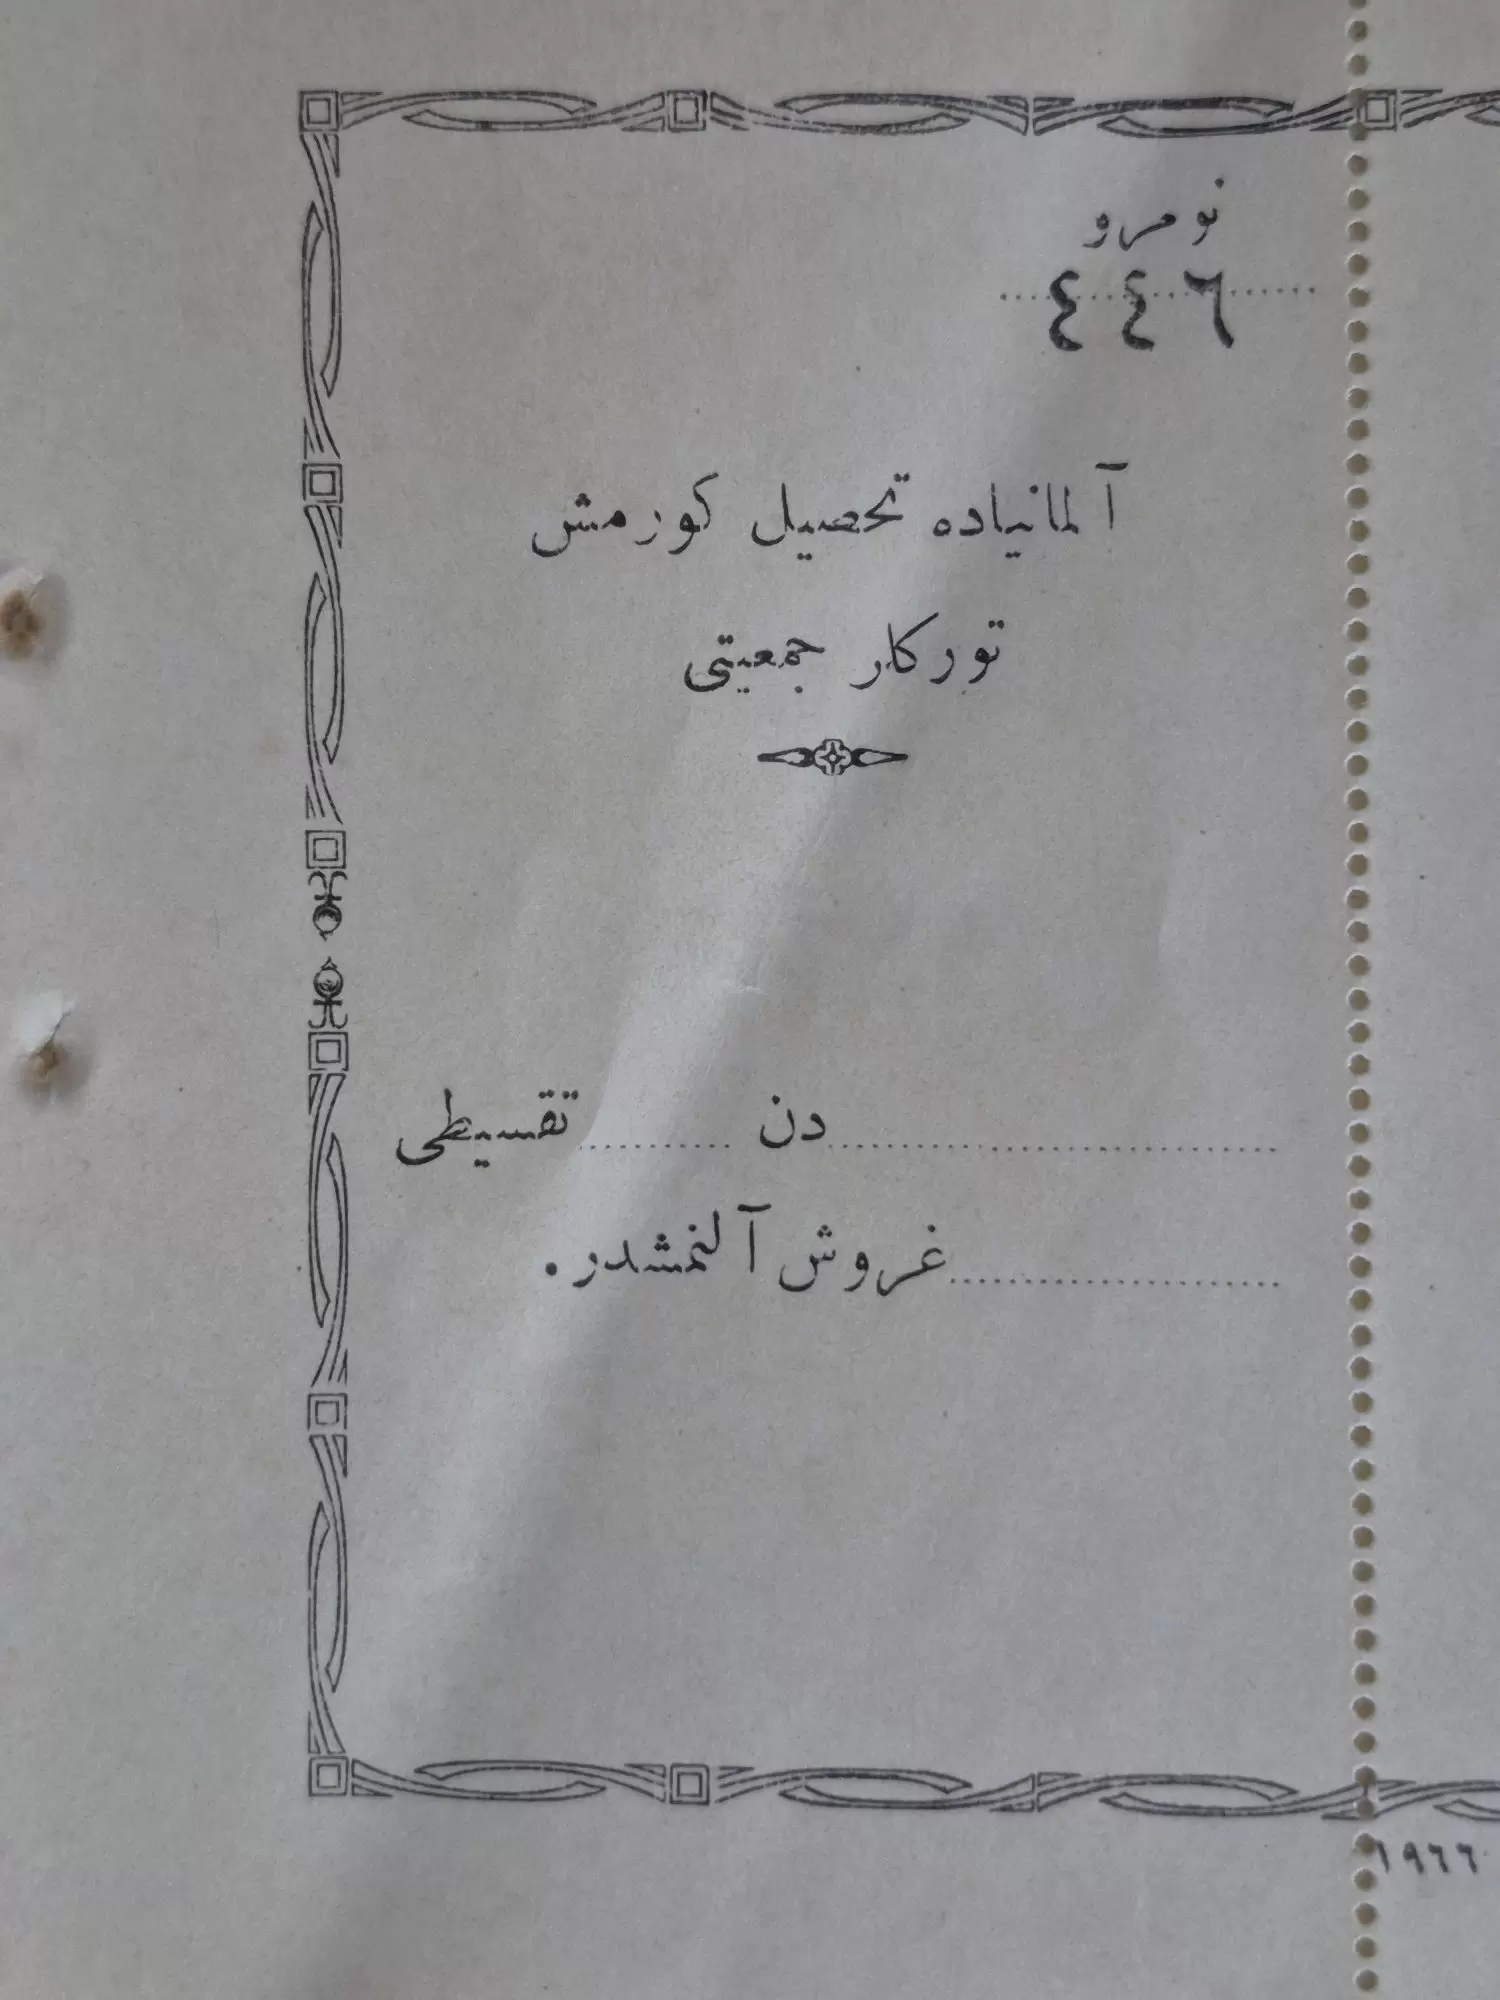 نومرو
٤٤٦
آلمانياده تحصيل كورمش
توركلر جمعيتى
....................دن .........تقسيطى
....................غروش آلنمشدر.
١٩٦٦